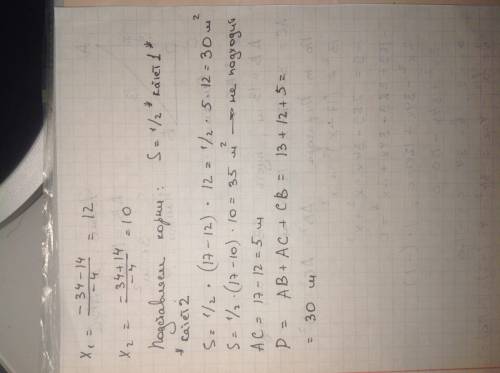 x₁ = (-34-14)/-4 = 12
x₂ = (-34+14)/-4 = 10
Подставляем корни: S = 1/2 * катет 1 *
* катет 2
S = 1/2 · (17-12) · 12 = 1/2 · 5 · 12 = 30 м²
S = 1/2 · (17-10) · 10 = 35 м² → не подходит
AC = 17-12 = 5 м
P = AB + AC + CB = 13 + 12 + 5 =
= 30 м